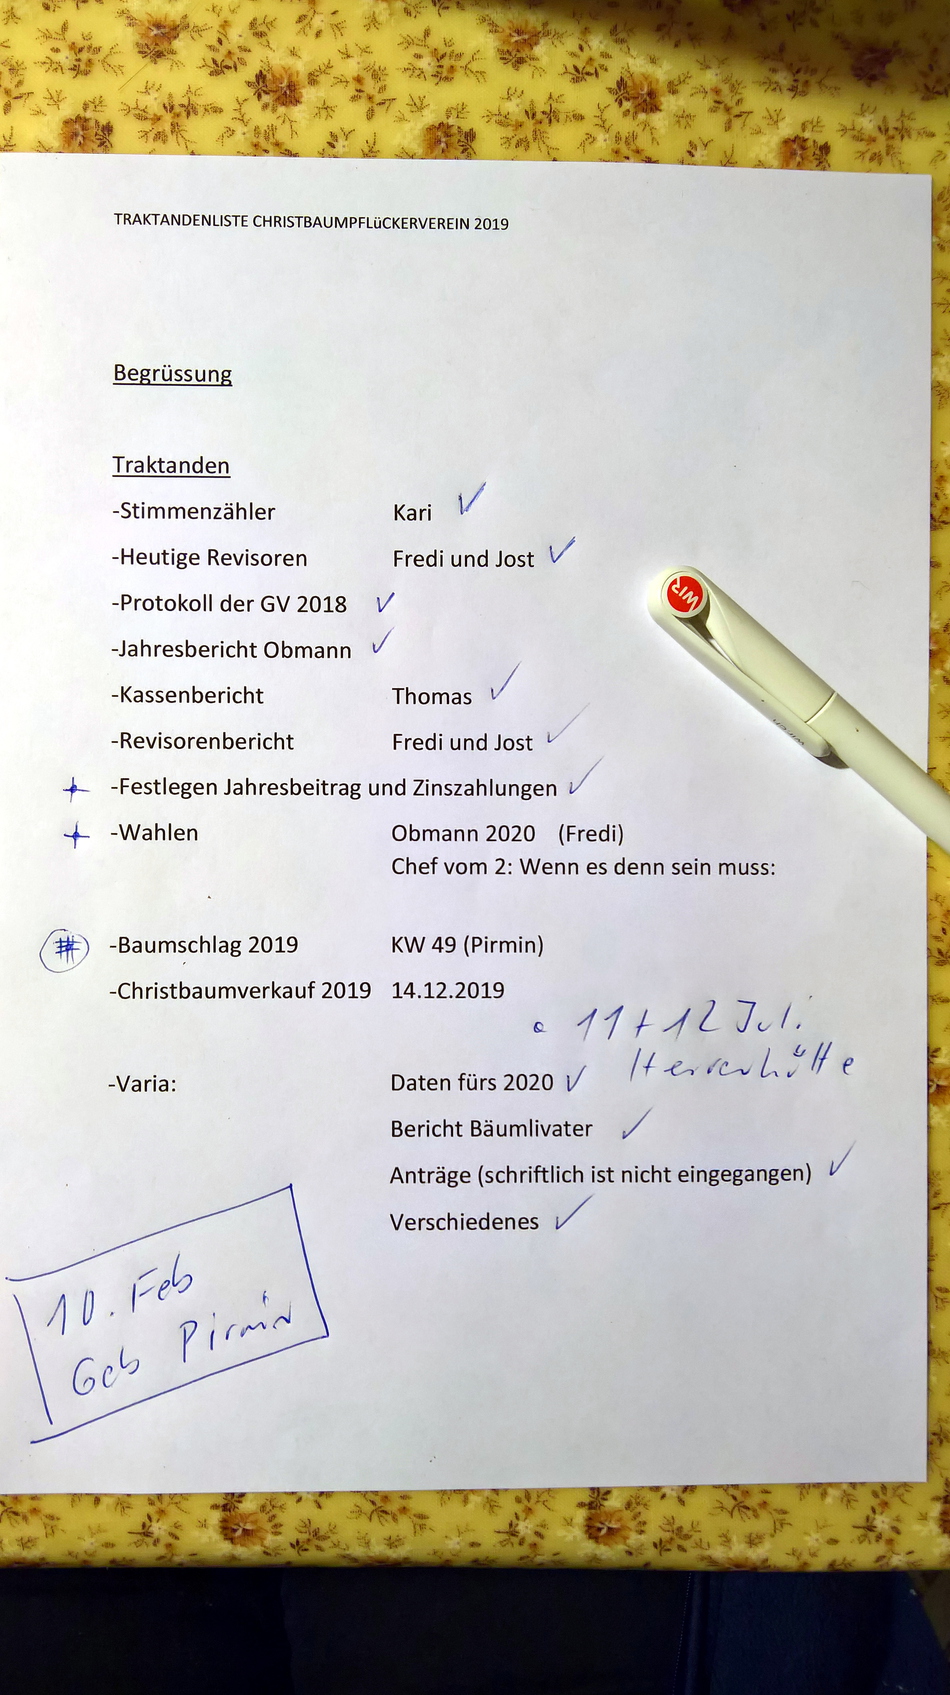 TRAKTANDENLISTE CHRISTBAUMPFLüCKERVEREIN 2019
Begrüssung
Traktanden
-Stimmenzähler Kari
-Heutige Revisoren Fredi und Jost
-Protokoll der GV 2018
-Jahresbericht Obmann
-Kassenbericht Thomas
-Revisorenbericht Fredi und Jost
-Festlegen Jahresbeitrag und Zinszahlungen
-Wahlen Obmann 2020 (Fredi)
Chef vom 2: Wenn es denn sein muss:
# -Baumschlag 2019 KW 49 (Pirmin)
-Christbaumverkauf 2019 14.12.2019
11+12 Juli
Herrenhütte
-Varia: Daten fürs 2020
Bericht Bäumlivater
Anträge (schriftlich ist nicht eingegangen)
Verschiedenes
10. Feb
Geb Pirmin
WIR